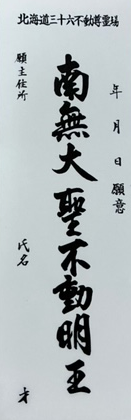 北海道三十六不動尊霊場
年 月 日 願意
南無大聖不動明王
願主住所
氏名
才